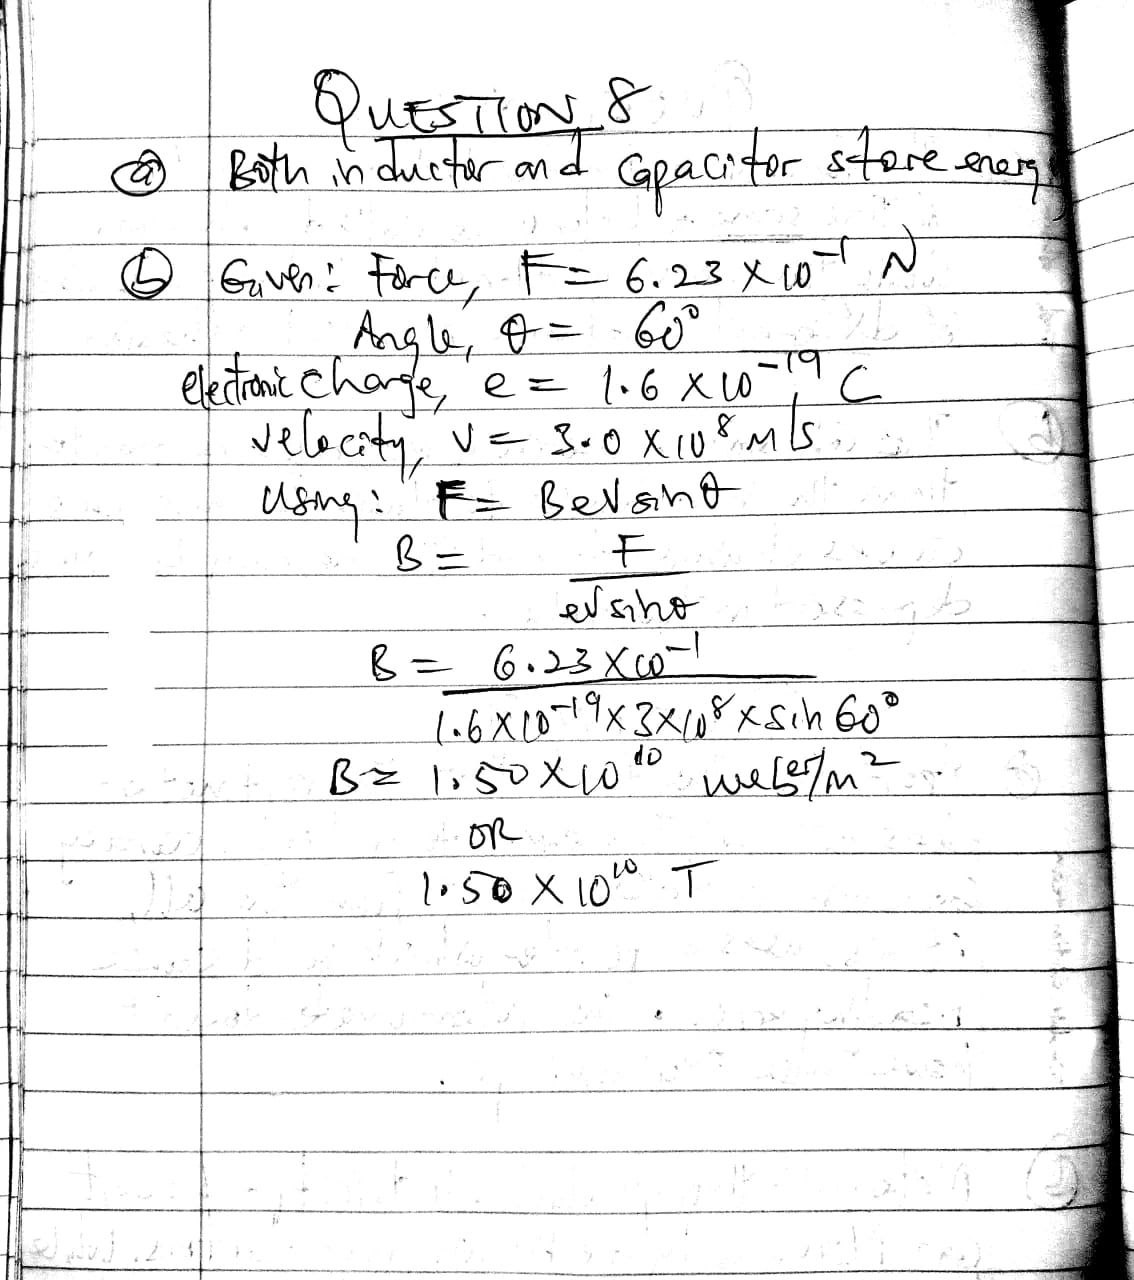 QUESTION 8
(a) Both inductor and capacitor store energy
(b) Given: Force, F = 6.23 × 10⁻¹ N
Angle, θ = 60°
electronic charge, e = 1.6 × 10⁻¹⁹ C
velocity, v = 3.0 × 10⁸ m/s
Using: F = Bevsinθ
B = F
ev sinθ
B = 6.23 × 10⁻¹
1.6 × 10⁻¹⁹ × 3 × 10⁸ × sin 60°
B = 1.50 × 10¹⁰ weber/m²
OR
1.50 × 10¹⁰ T